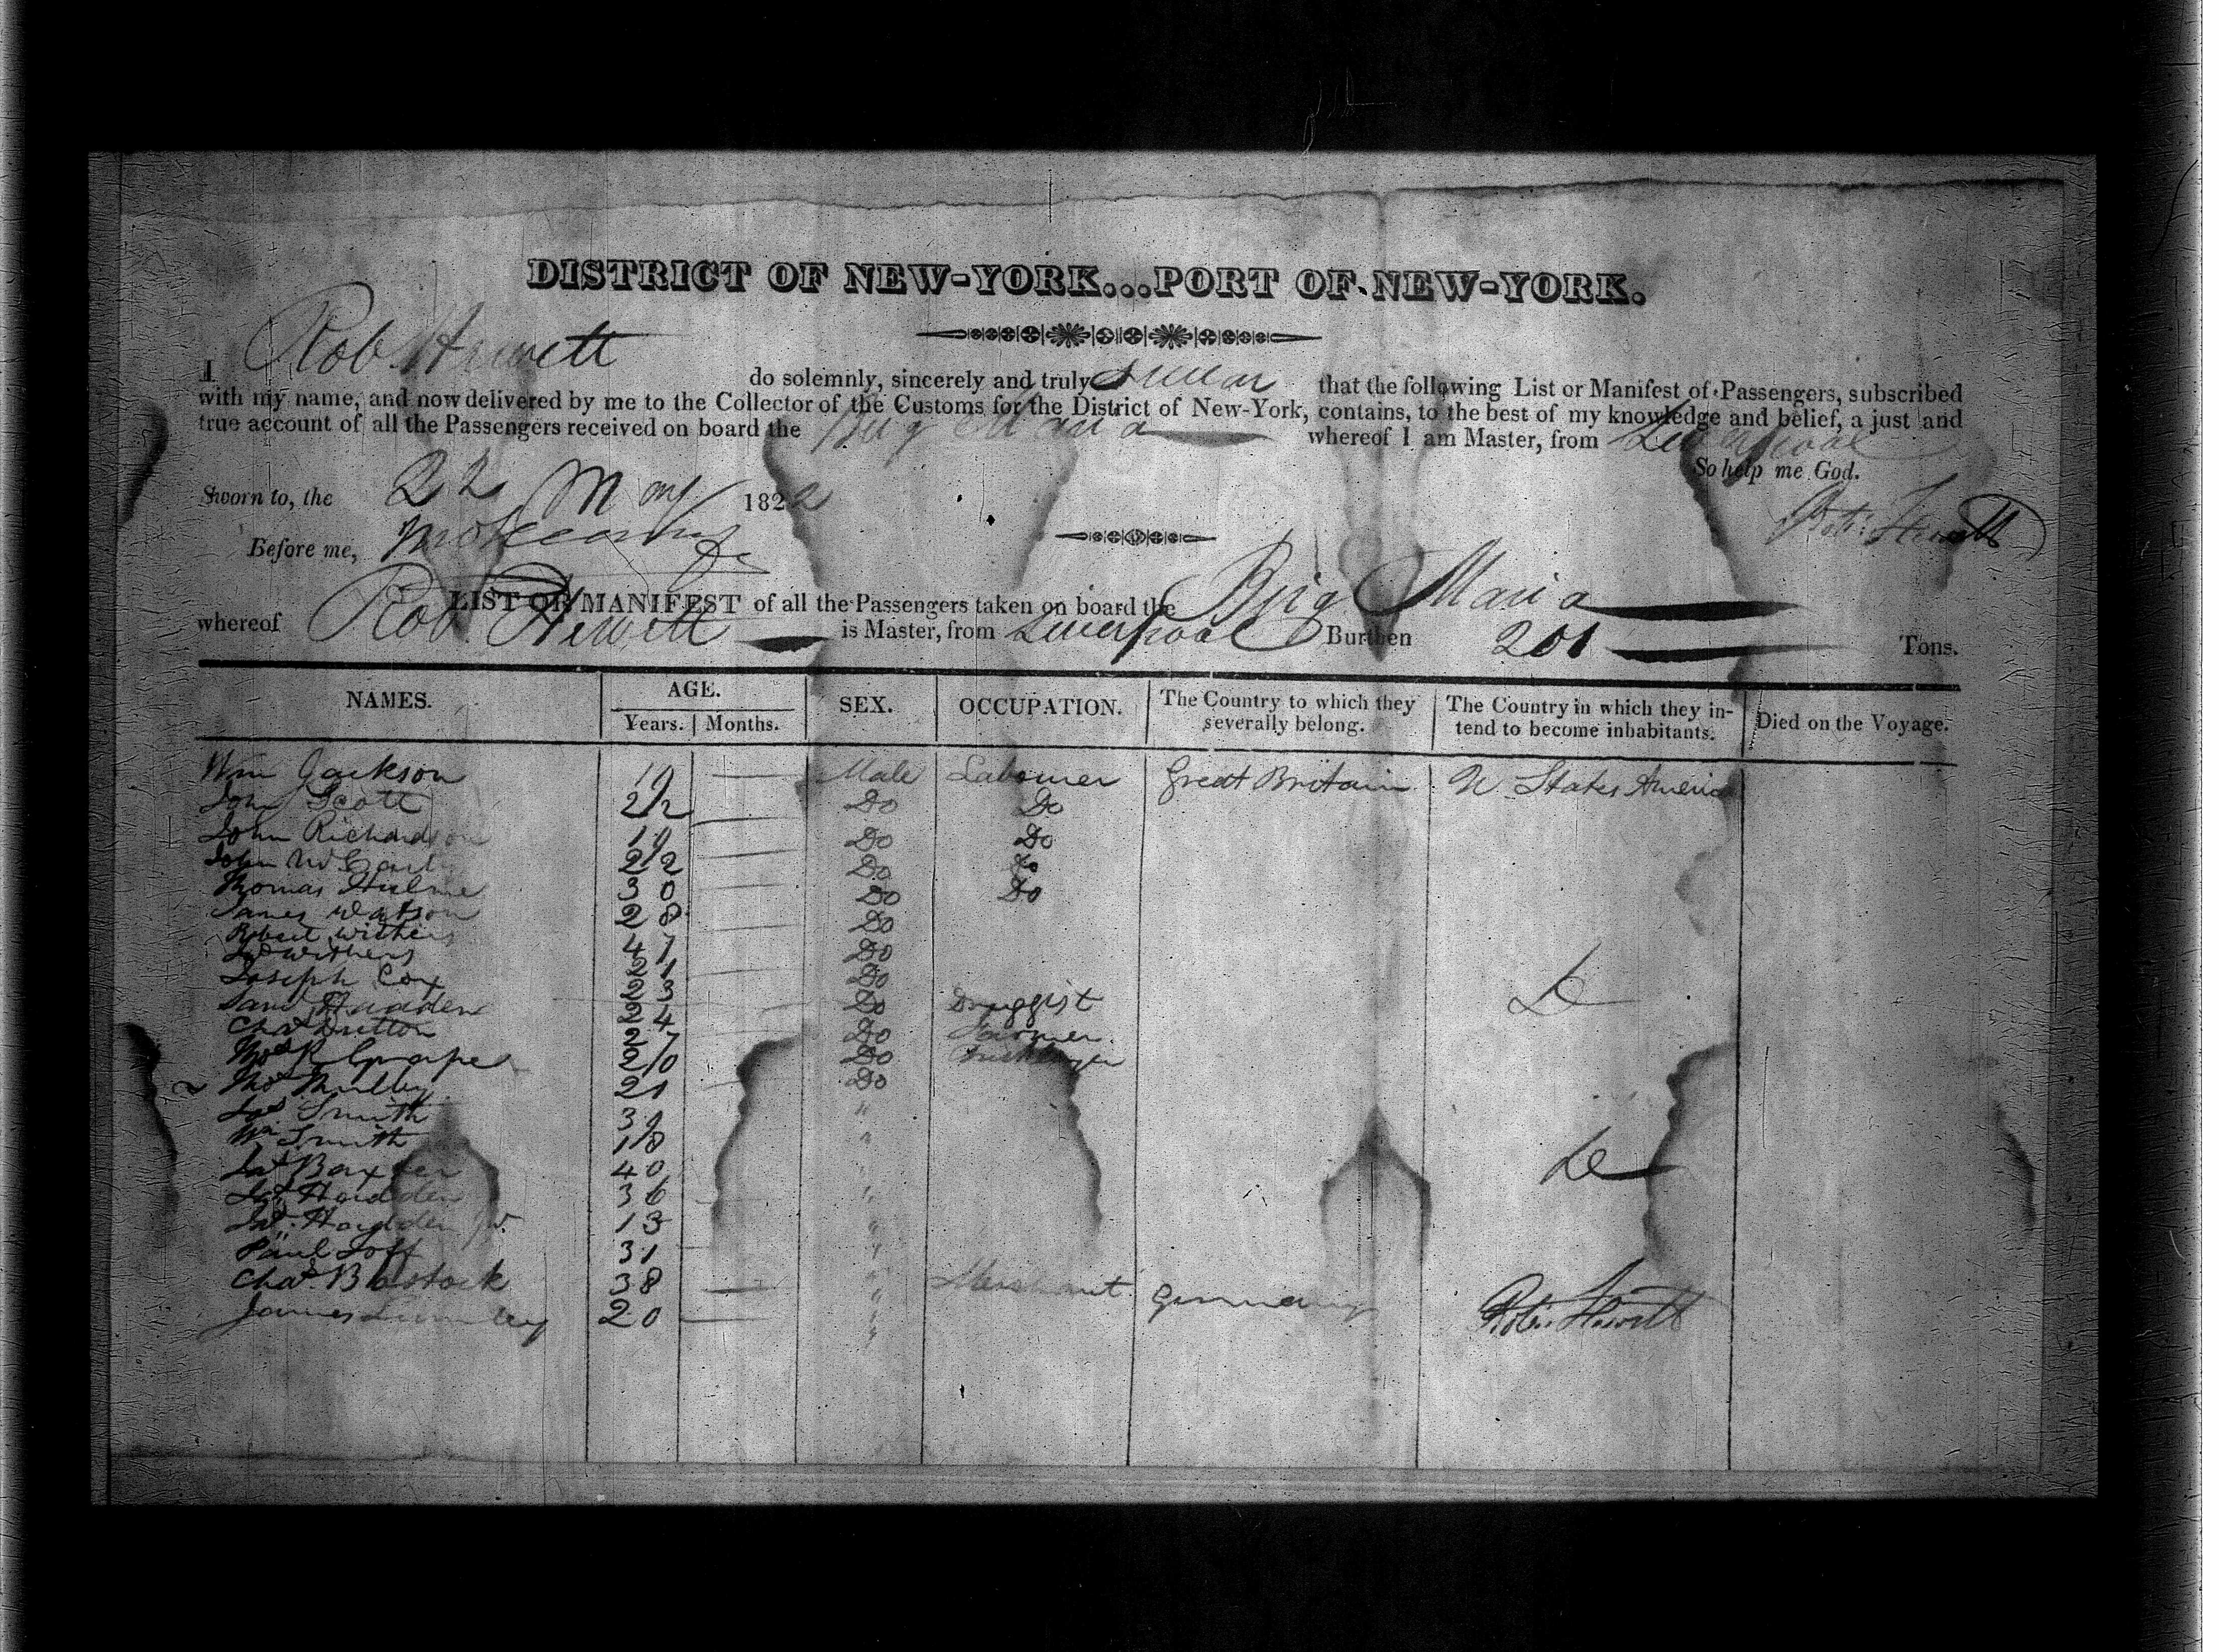 DISTRICT OF NEW-YORK...PORT OF NEW-YORK.
I Rob. Hewett do solemnly, sincerely and truly swear that the following List or Manifest of Passengers, subscribed
with my name, and now delivered by me to the Collector of the Customs for the District of New-York, contains, to the best of my knowledge and belief, a just and
true account of all the Passengers received on board the Brig Maria whereof I am Master, from Liverpool
So help me God.
Sworn to, the 22 May 1822
Robt. Hewett
Before me,
LIST OR MANIFEST of all the Passengers taken on board the Brig Maria
whereof Rob. Hewett is Master, from Liverpool Burthen 201 Tons.
NAMES. AGE. SEX. OCCUPATION. The Country to which they severally belong. The Country in which they intend to become inhabitants. Died on the Voyage.
Years. Months.
Wm Jackson 19 Male Labourer Great Britain U. States America
John Scott 22 Do Do
John Richardson 19 Do Do
John 22 Do Do
Thomas Hulme 30 Do Do
James Watson 28 Do
Robert Withers 47 Do
Withers 21 Do
Joseph Cox 23 Do
Saml Hadden 24 Do Druggist
Chas Dutton 27 Do Farmer
20 Do
Thos 21 Do
Jas Smith 39 "
Wm Smith 18 "
Jas Baxter 40 "
Jas Hadden 36 "
Jas. Hadden Jr. 13 "
Paul Joff 31 "
Chas. Bostock 38 " Merchant Germany
James 20 "
Robt. Hewett